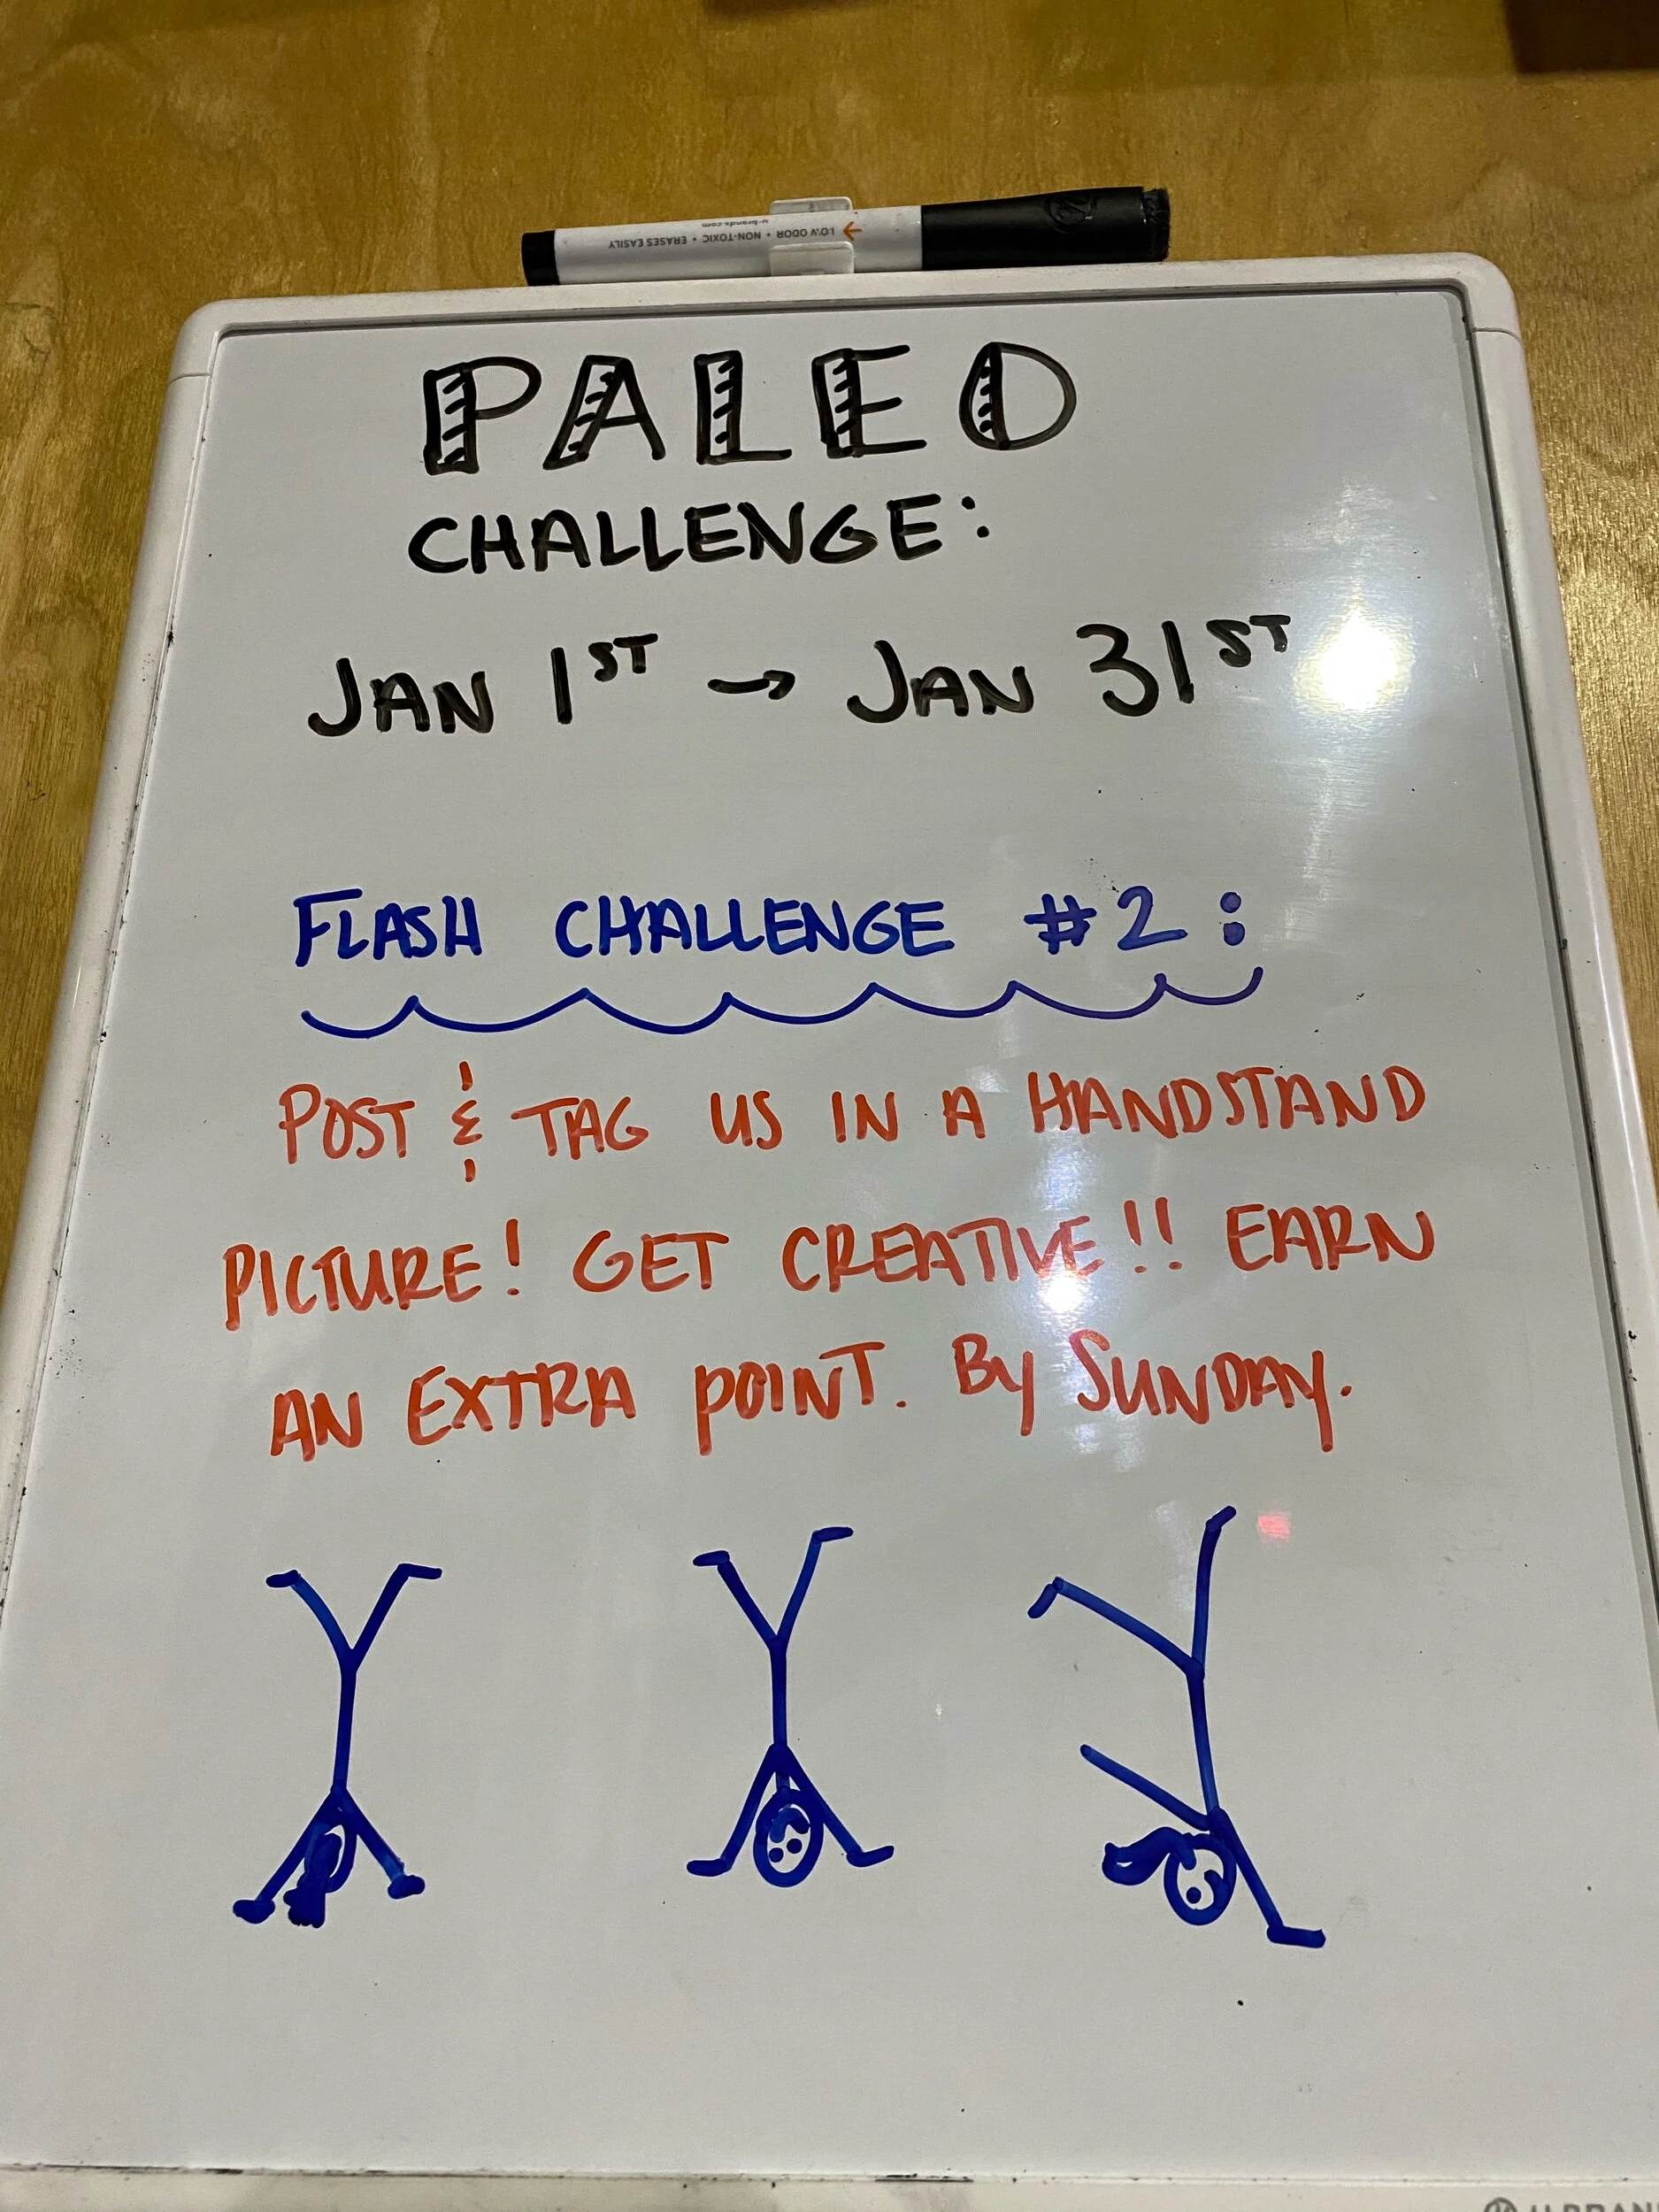 LOW ODOR • NON-TOXIC • ERASES EASILY
u-brands.com
PALEO
CHALLENGE:
JAN 1ST → JAN 31ST
FLASH CHALLENGE #2:
POST & TAG US IN A HANDSTAND
PICTURE! GET CREATIVE!! EARN
AN EXTRA POINT. BY SUNDAY.